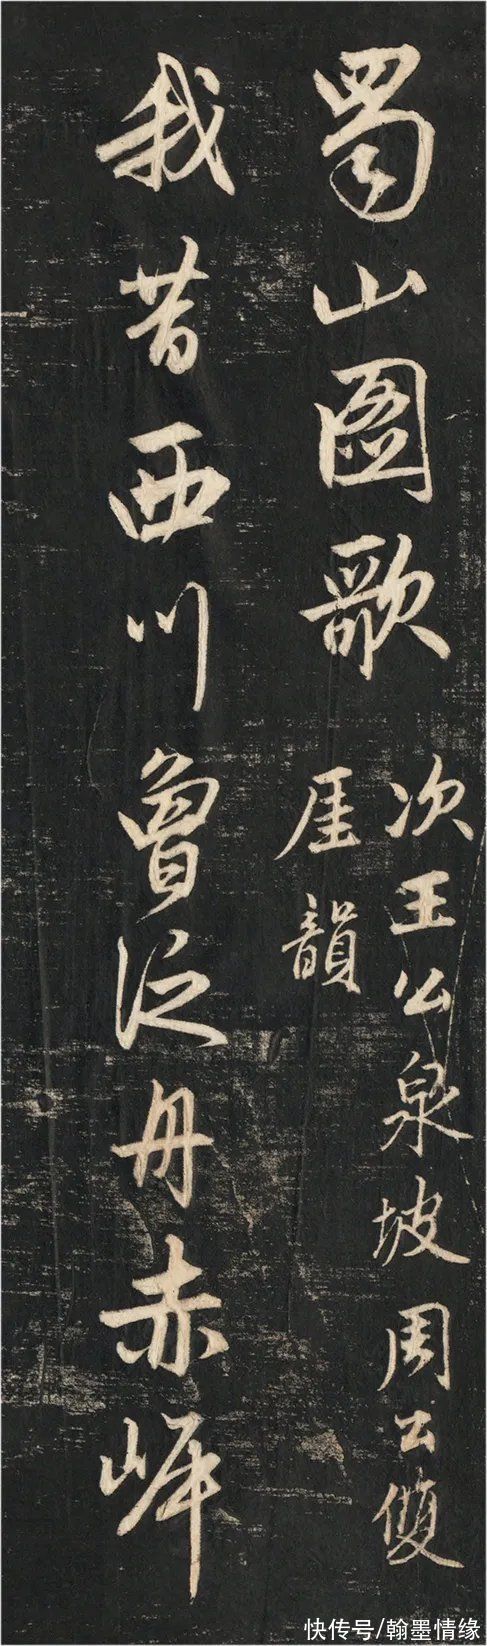 蜀山圖歌
次王公泉坡周公雙
厓韻
我昔西川曾泛舟赤岬
快传号/翰墨情缘